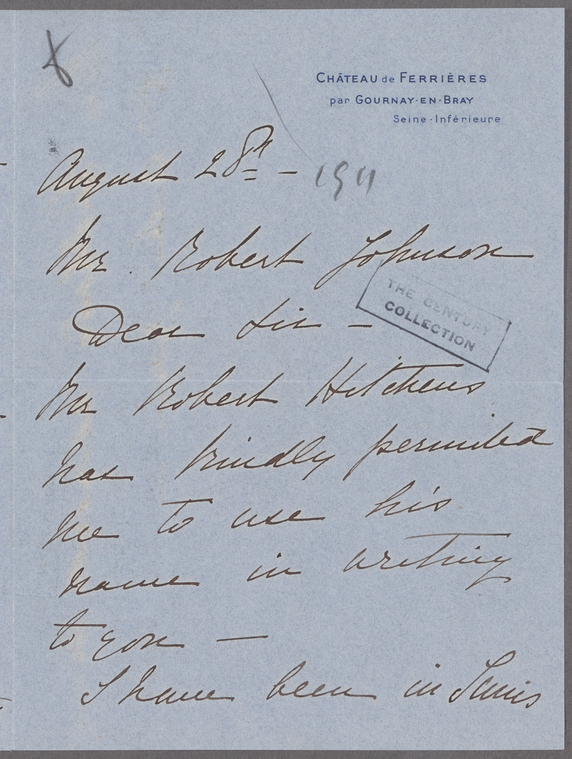 CHÂTEAU de FERRIÈRES
par GOURNAY-EN-BRAY
Seine-Inférieure
August 28th - 1911
Mr. Robert Johnson
Dear Sir -
THE CENTURY
COLLECTION
Mr Robert Hitchens
has kindly permitted
me to use his
name in writing
to you —
I have been in Tunis